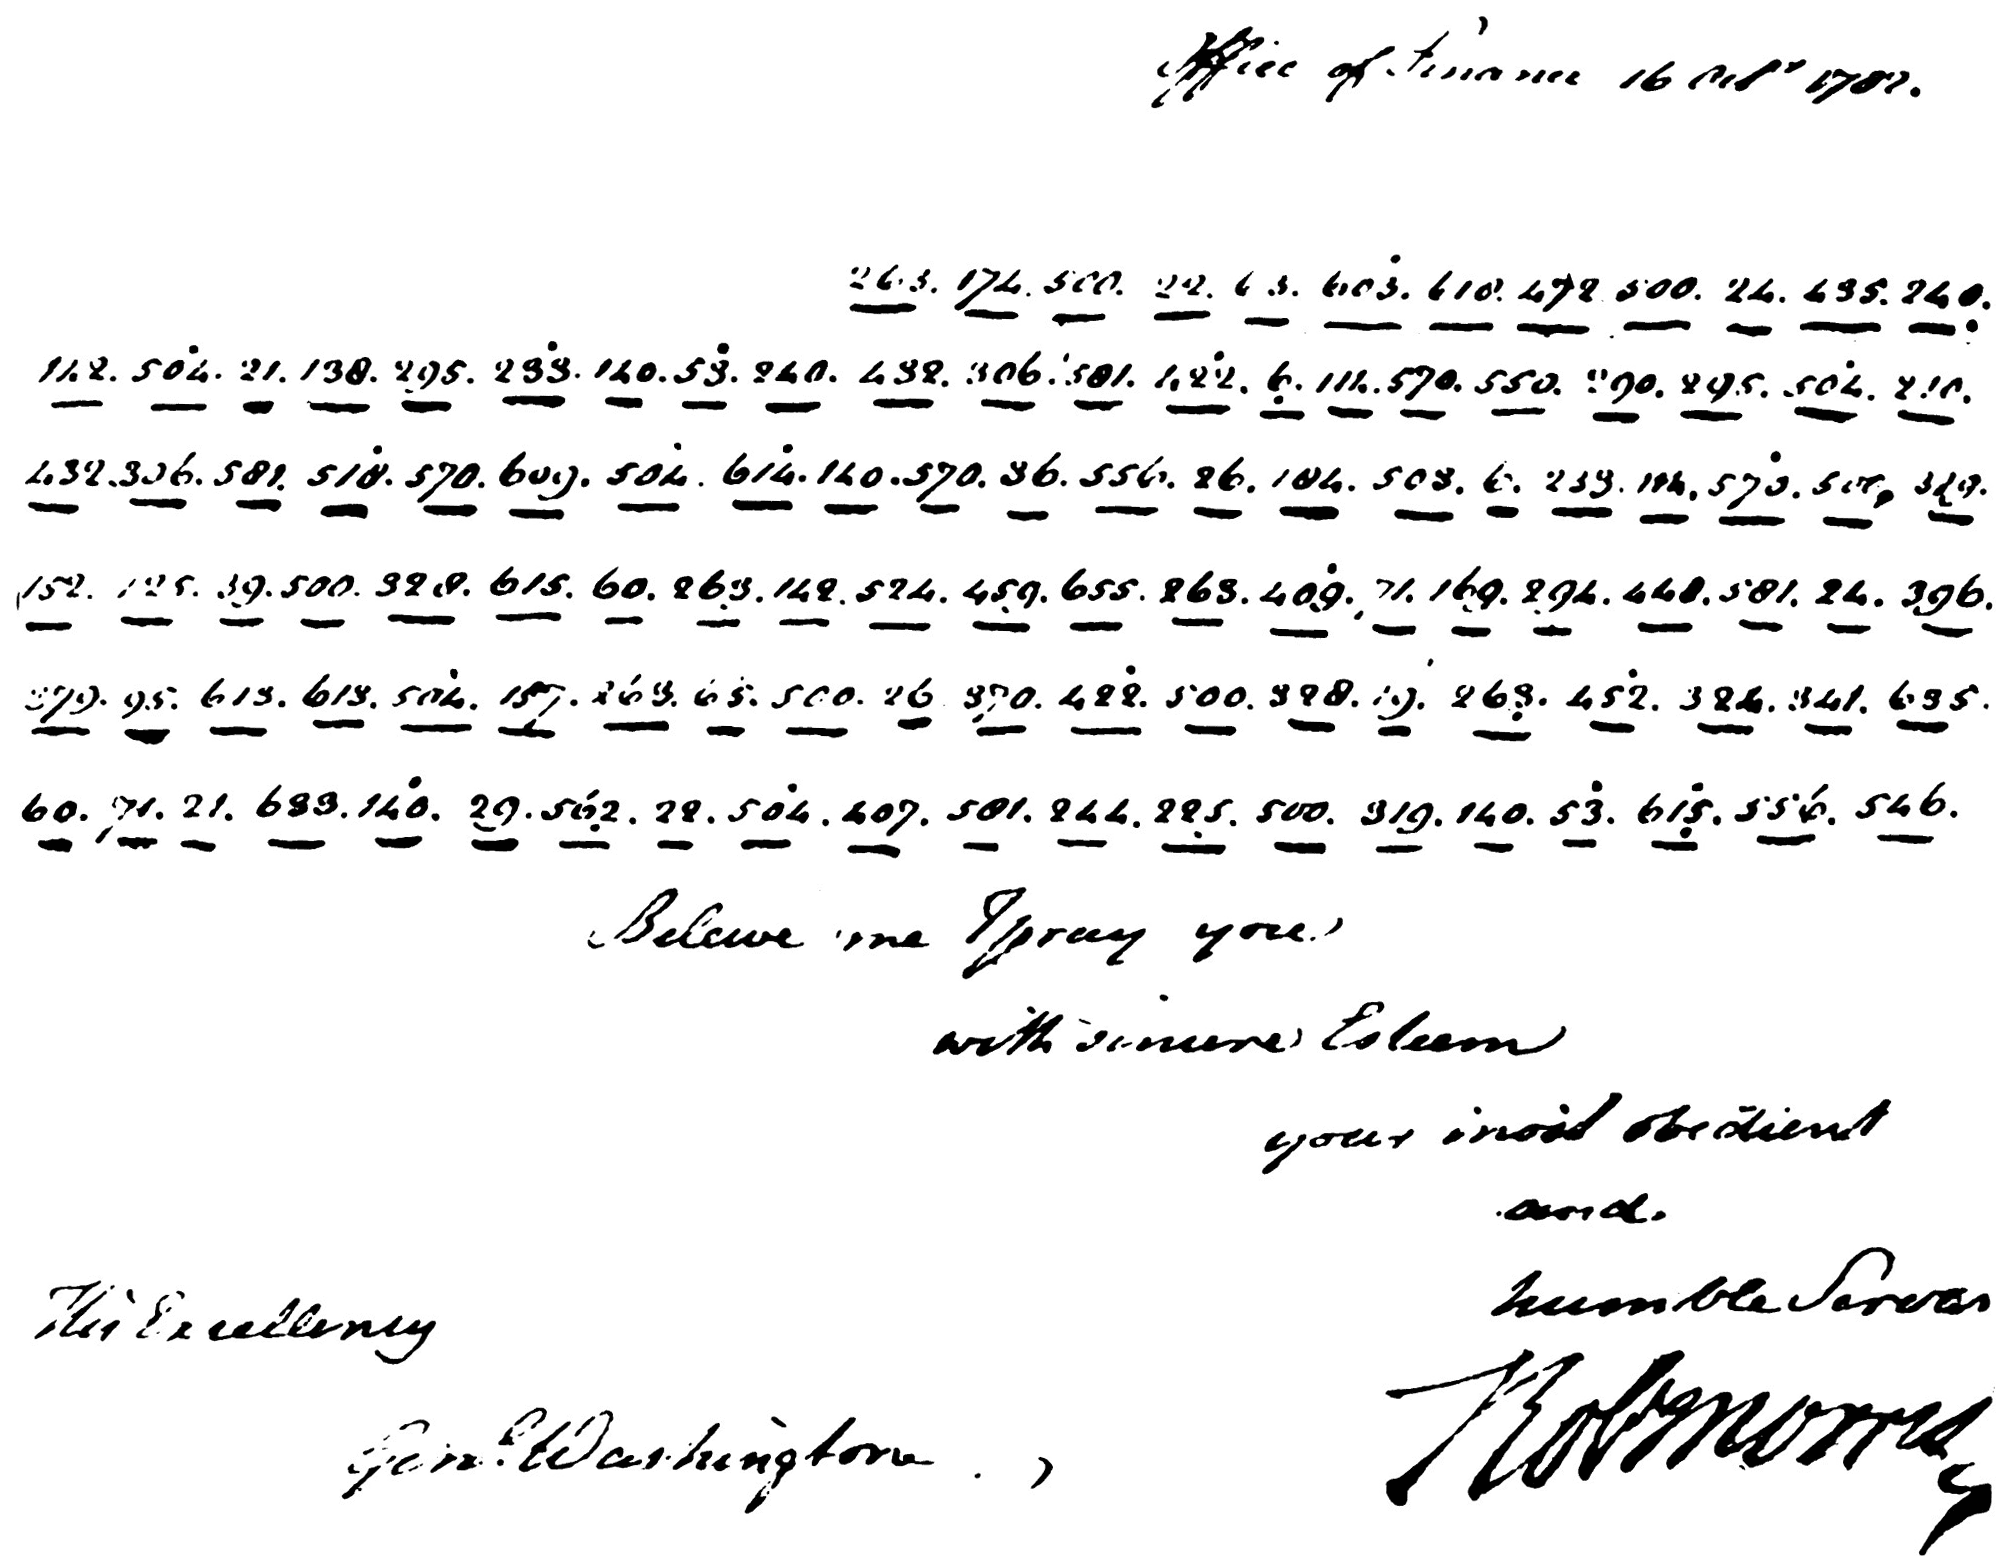 Office of Finance 16 Octr 1782.
263. 174. 500. 22. 63. 603. 610. 472. 500. 24. 435. 240.
142. 504. 21. 138. 295. 233. 140. 53. 240. 432. 306. 581. 422. 6. 114. 570. 550. 290. 295. 504. 210.
432. 306. 581. 518. 570. 609. 504. 614. 140. 570. 36. 556. 26. 184. 503. 6. 233. 114. 573. 500. 329.
152. 125. 39. 500. 328. 615. 60. 263. 142. 524. 459. 655. 263. 409. 71. 169. 294. 448. 581. 24. 396.
379. 95. 613. 613. 504. 157. 263. 65. 500. 26. 370. 422. 500. 328. 19. 263. 452. 324. 341. 635.
60. 71. 21. 633. 140. 29. 562. 22. 504. 407. 581. 244. 225. 500. 319. 140. 53. 615. 556. 546.
Believe me I pray you
with sincere Esteem
your most obedient
and
humble Servan
His Excellency
Robt Morris
Genl. Washington